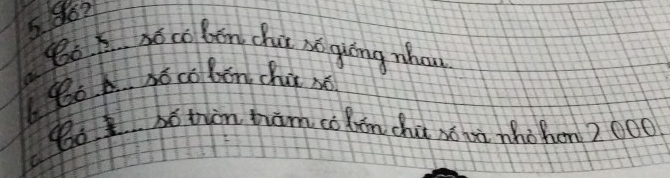 5. Số?
a. Có ..... số có bốn chữ số giống nhau.
b. Có ..... số có bốn chữ số.
c. Có ..... số tròn trăm có bốn chữ số và nhỏ hơn 2000